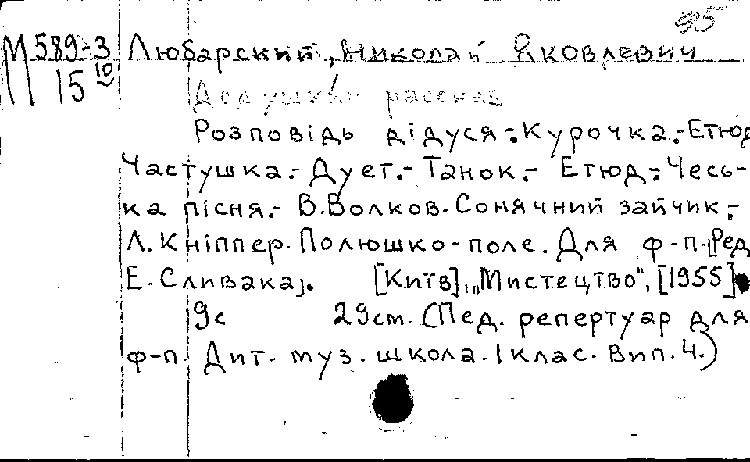 95
М 589-3 Любарский, Николай Яковлевич
15 10
Дедушкин рассказ
Розповідь дідуся.-Курочка.-Етюд
Частушка.- Дует.- Танок.- Етюд.- Чесь-
ка пісня.- В.Волков.Сонячний зайчик.-
Л.Кніппер.Полюшко-поле. Для ф-п.[Ред
Е.Сливака]. [Київ], „Мистецтво", [1955]
9с 29см. (Пед. репертуар для
ф-п. Дит. муз. школа. 1 клас. Вип.4.)